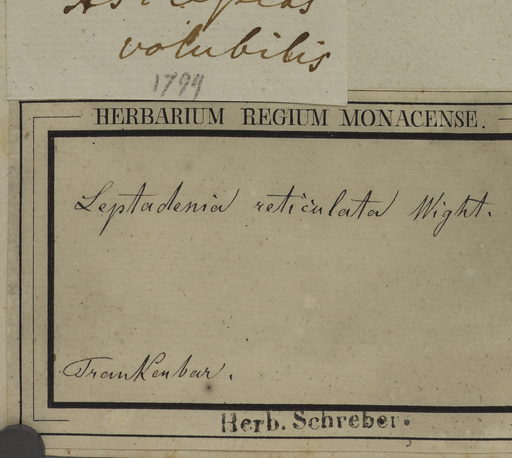 Asclepias
volubilis
1794
HERBARIUM REGIUM MONACENSE.
Leptadenia reticulata Wight.
Trankenbar.
Herb. Schreber.